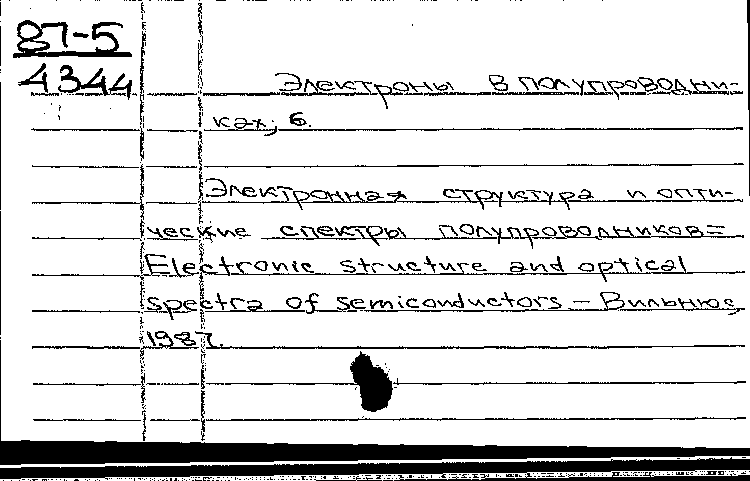 87-5
4344
Электроны в полупроводни-
ках; 6.
Электронная структура и опти-
ческие спектры полупроводников=
Electronic structure and optical
spectra of semiconductors – Вильнюс,
1987.